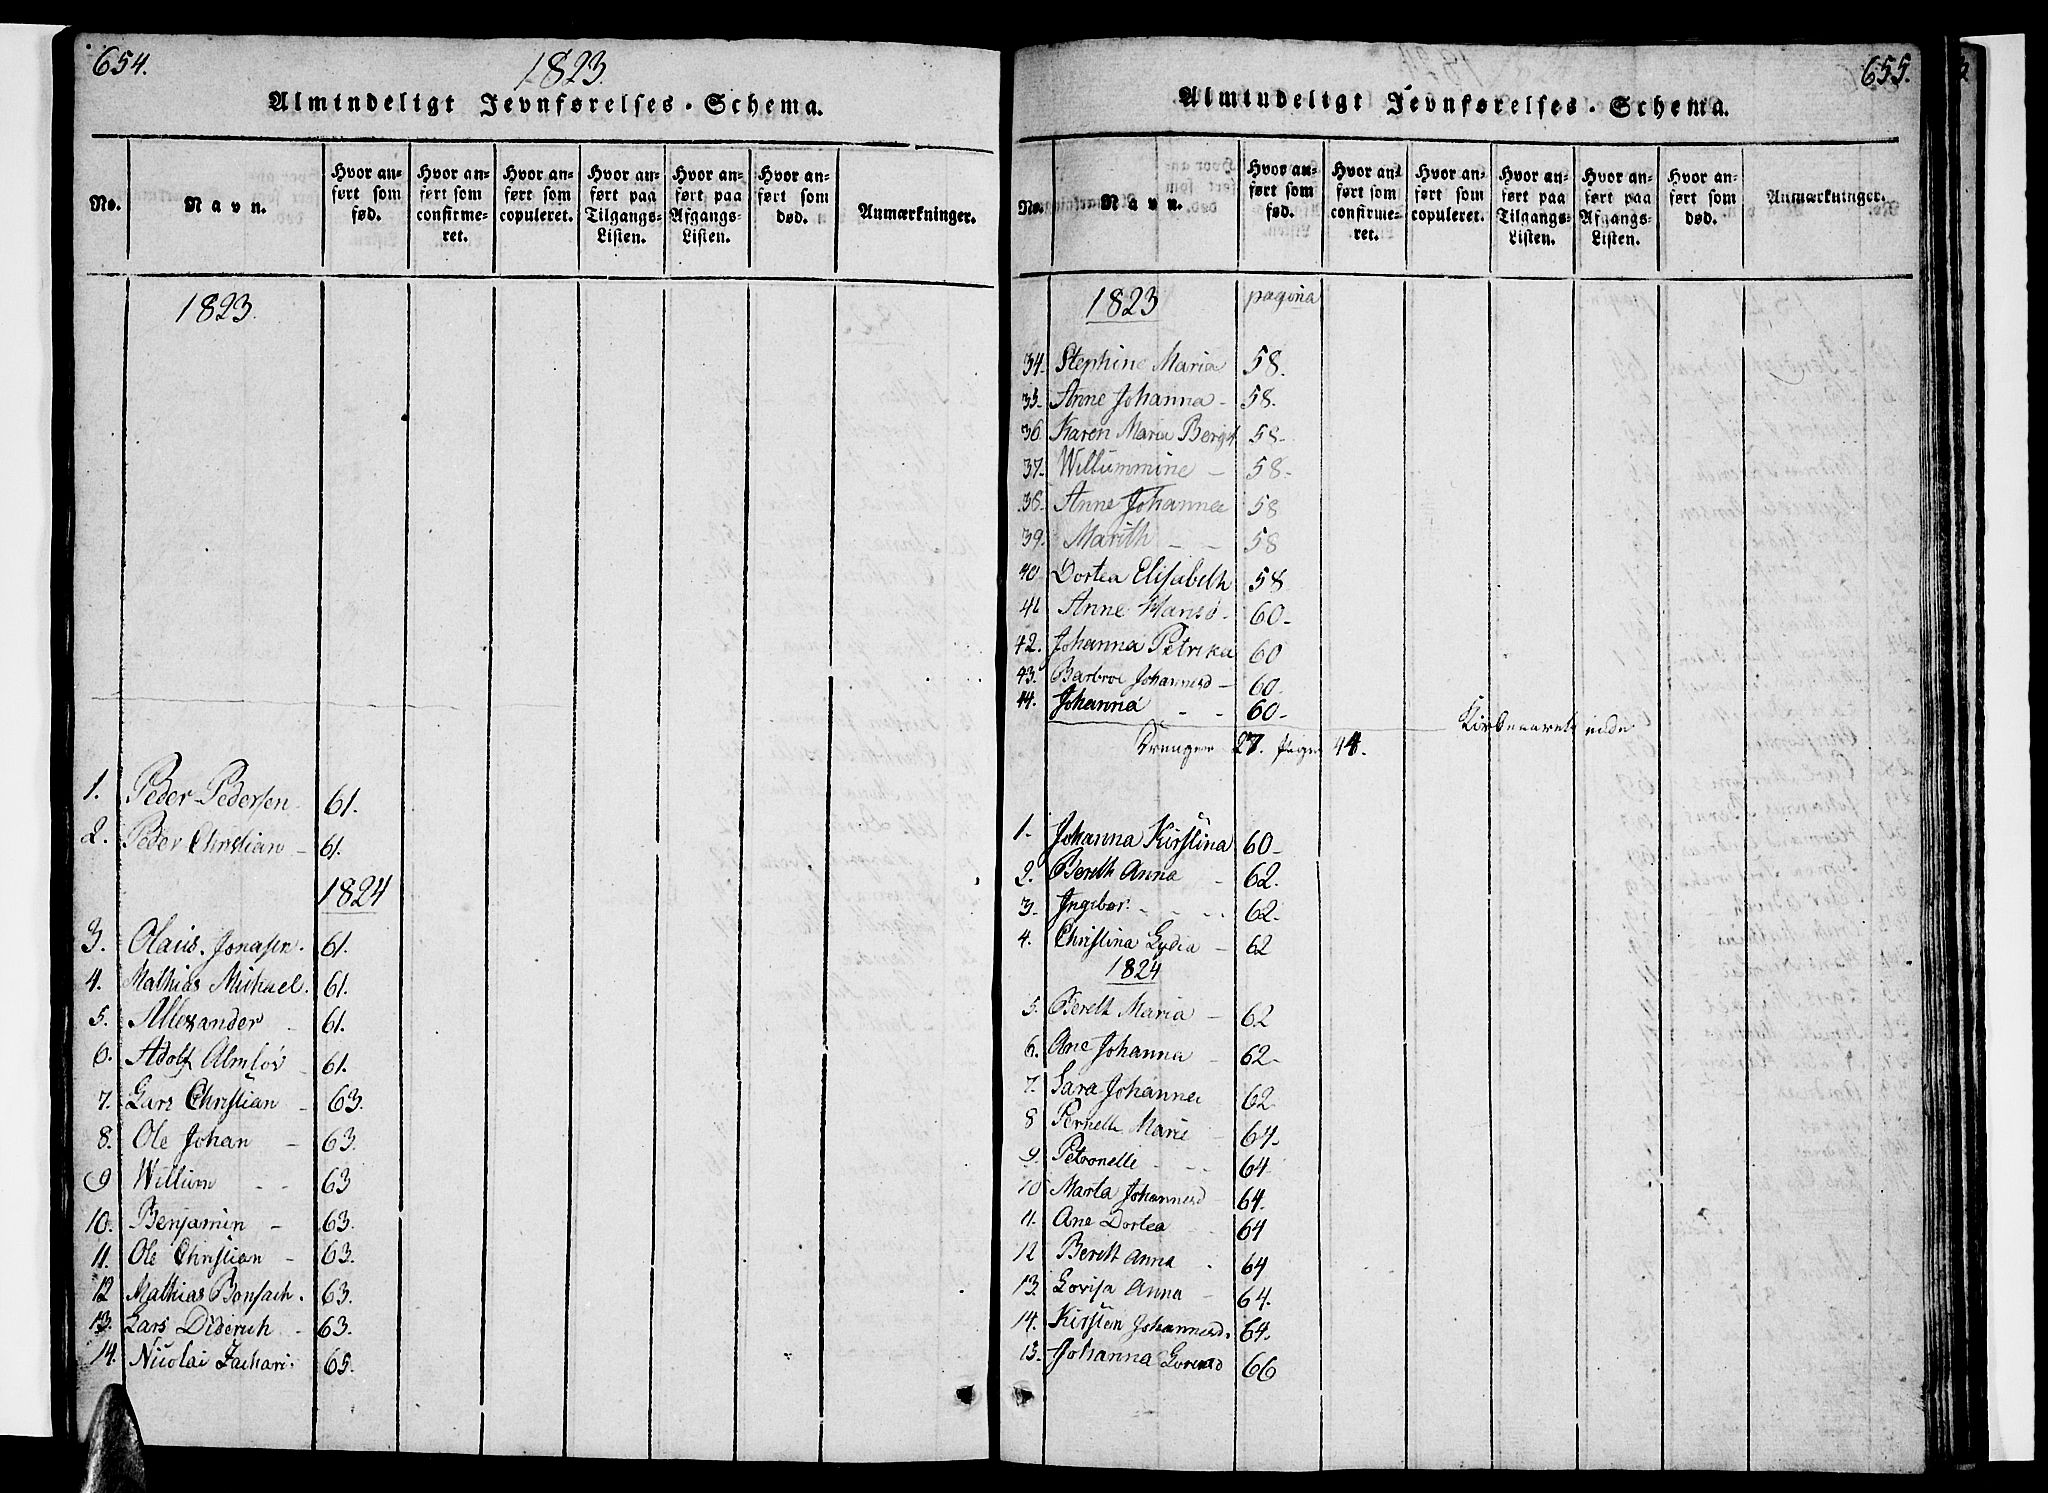 654.
1823.
Almindeligt Jevnførelses-Schema.
No.
Navn.
Hvor anført som fød.
Hvor anført som confirmeret.
Hvor anført som copuleret.
Hvor anført paa Tilgangs-Listen.
Hvor anført paa Afgangs-Listen.
Hvor anført som død.
Anmærkninger.
1823.
1. Peder Pedersen 61.
2. Peder Christian - 61.
1824
3. Olaus Jonasen. 61.
4. Mathias Michael. 61.
5. Allexander - 61.
6. Adolf Almlov - 61.
7. Lars Christian - 63.
8. Ole Johan - 63.
9 Willium - - 63
10. Benjamin - 63.
11. Ole Christian - 63.
12 Mathias Bonsach. 63.
13. Lars Diderich - 63.
14. Nicolai Zachari: 65.
655.
Almindeligt Jevnførelses-Schema.
No.
Navn.
Hvor anført som fød.
Hvor anført som confirmeret.
Hvor anført som copuleret.
Hvor anført paa Tilgangs-Listen.
Hvor anført paa Afgangs-Listen.
Hvor anført som død.
Anmærkninger.
1823 pagina
34. Stephine Maria 58.
35. Anne Johanna - 58.
36. Karen Maria 58-
37. Willummine - 58-
38. Anne Johannea 58
39. Marith - - 58
40 Dortea Elisabeth 58
41 Anne Hansd. 60-
42. Johanna Petrika 60
43. Barbroe Johannesd - 60.
44. Johanna - - 60-
Drenger 27. Piger 44.
Kirkeaarets ende
1. Johanna Kirstina 60-
2. Bereth Anna - 62.
3. Ingebor: - - 62-
4. Christina Lydia - 62
1824
5. Bereth Maria - 62
6. Ane Johanna - 62-
7. Sara Johannea 62
8 Pernelle Marie - 64-
9. Petronelle - - 64
10 Marta Johannesd - 64.
11. Ane Dortea 64
12 Bereth Anna . 64
13. Lovisa Anna - 64.
14. Kirsten Johannesd. 64.
15. Johanna 66